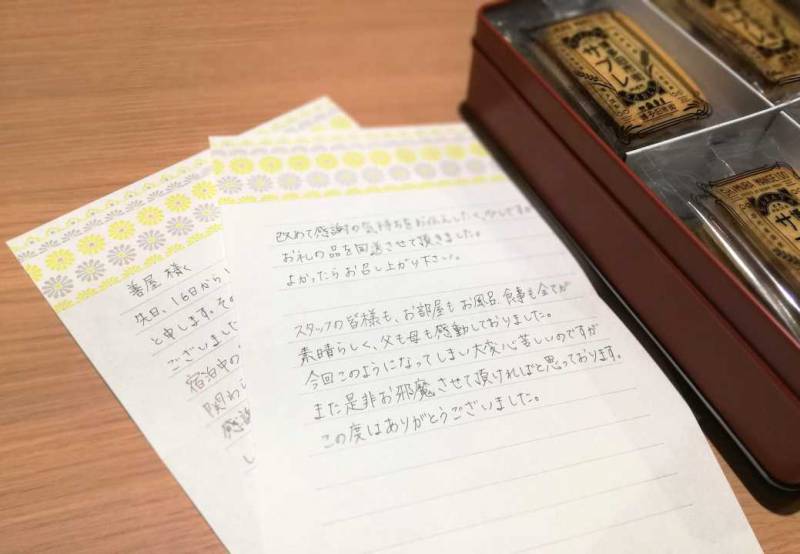 善屋 様へ
先日、16日から
と申します。その
ございました
宿泊中の
関わら
感謝
し
改めて感謝の気持ちをお伝えしたく、少しですが
お礼の品を同送させて頂きました。
よかったらお召し上がり下さい。
スタッフの皆様も、お部屋もお風呂、食事も全てが
素晴らしく、父も母も感動しておりました。
今回このようになってしまい大変心苦しいのですが
また是非お邪魔させて頂ければと思っております。
この度はありがとうございました。
サブレ
サブ